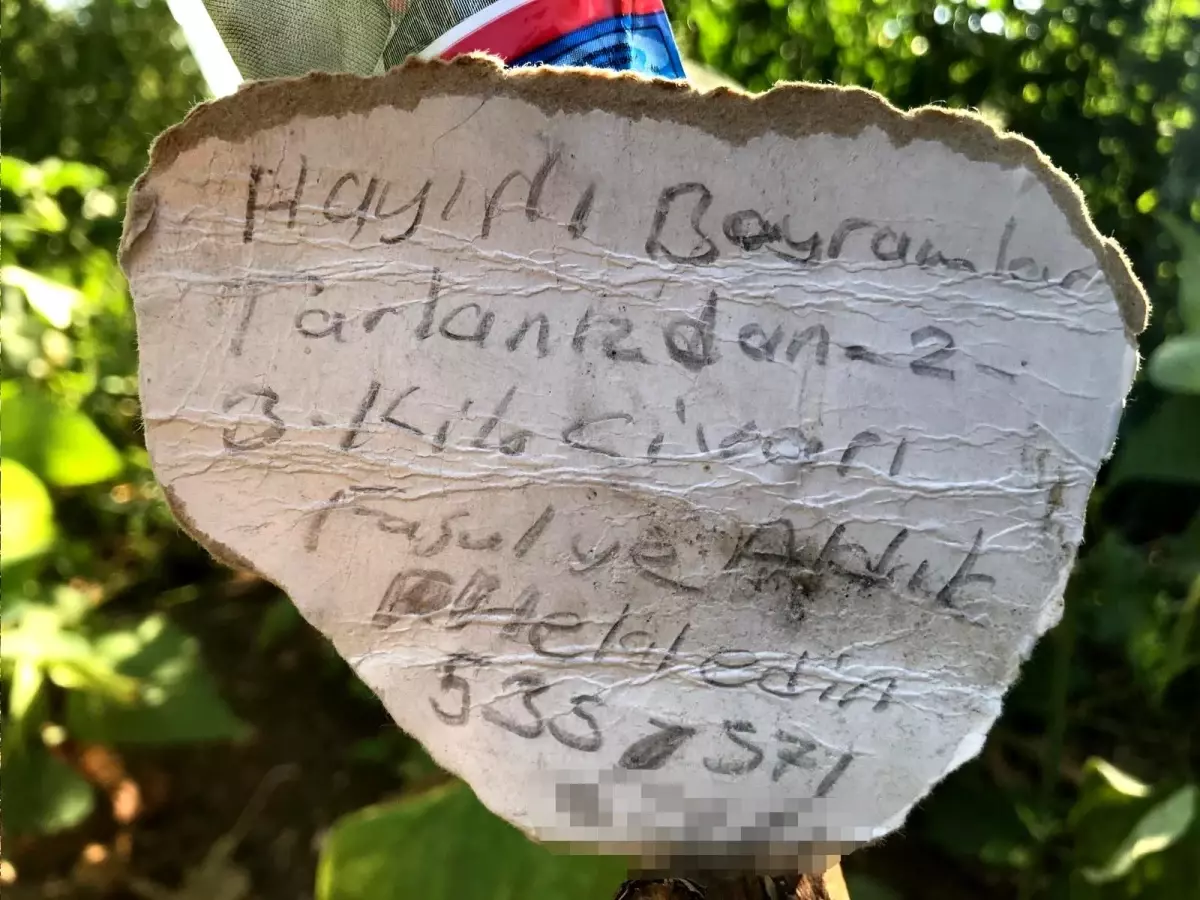 Hayırlı Bayramlar
Tarlanızdan-2-
3-Kilo Civarı
Fasulye Aldık
Helaledin
535 571